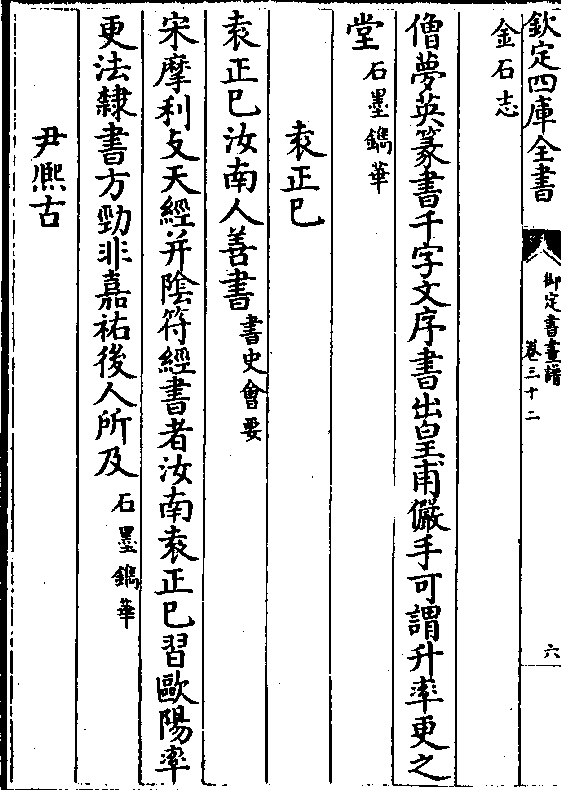 欽定四庫全書
御定書畫譜
卷三十二
六
金石志
僧夢英篆書千字文序書出皇甫儼手可謂升率更之
堂石墨鐫華
袁正己
袁正己汝南人善書書史會要
宋摩利支天經并陰符經書者汝南袁正己習歐陽率
更法隸書方勁非嘉祐後人所及石墨鐫華
尹熈古